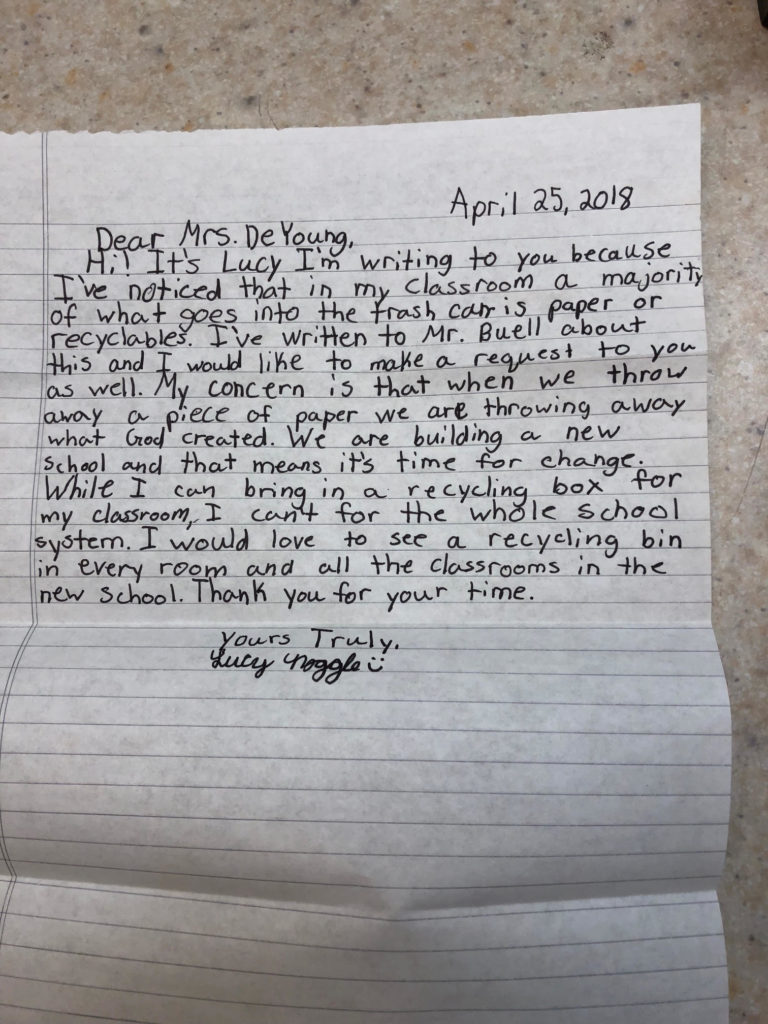 April 25, 2018
Dear Mrs. DeYoung,
Hi! It's Lucy I'm writing to you because
I've noticed that in my classroom a majority
of what goes into the trash can is paper or
recyclables. I've written to Mr. Buell about
this and I would like to make a request to you
as well. My concern is that when we throw
away a piece of paper we are throwing away
what God created. We are building a new
school and that means it's time for change.
While I can bring in a recycling box for
my classroom, I can't for the whole school
system. I would love to see a recycling bin
in every room and all the classrooms in the
new school. Thank you for your time.
Yours Truly,
Lucy Noggle :)